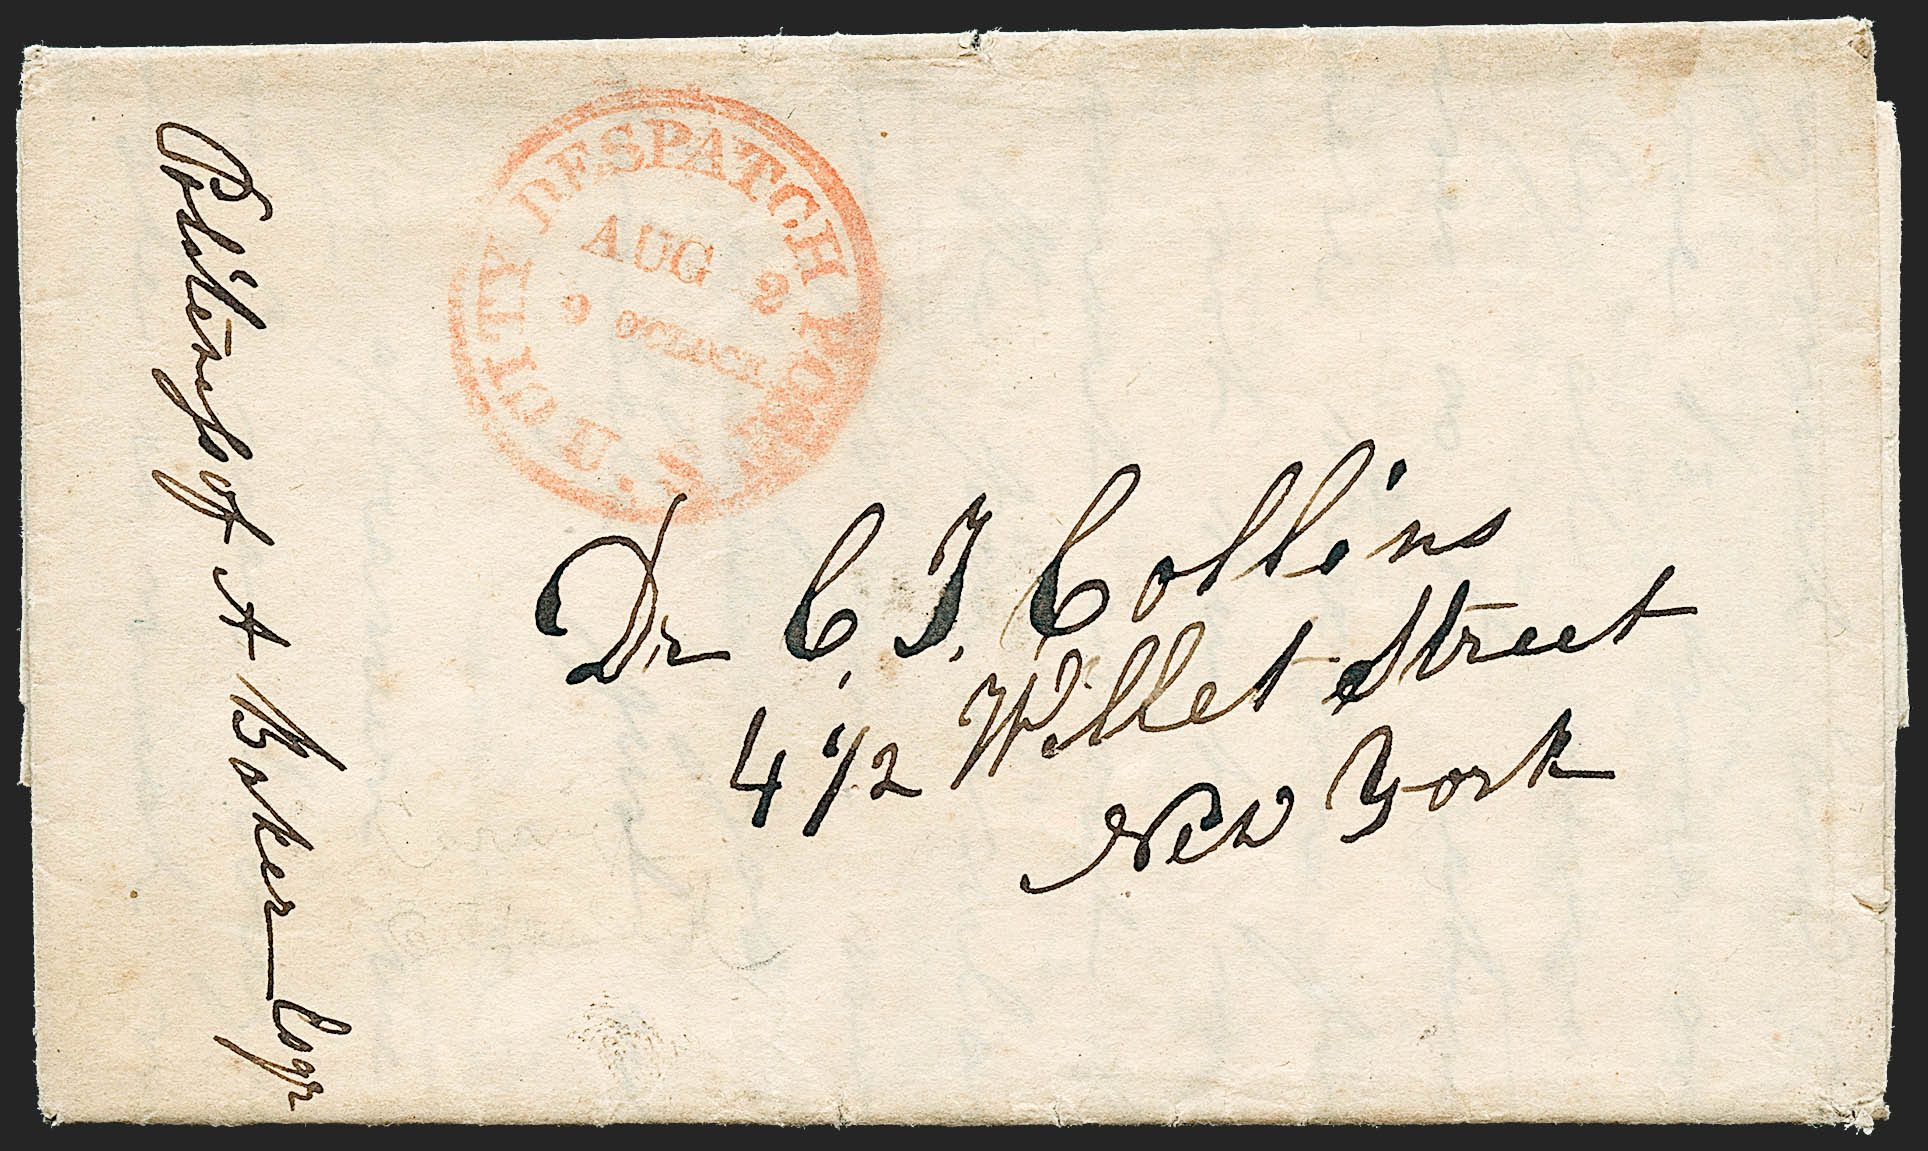 U.S. CITY DESPATCH POST
AUG 2
9 O'CLOCK
Dr C. T. Collins
4 1/2 Willet Street
New York
Politeness of A Baker